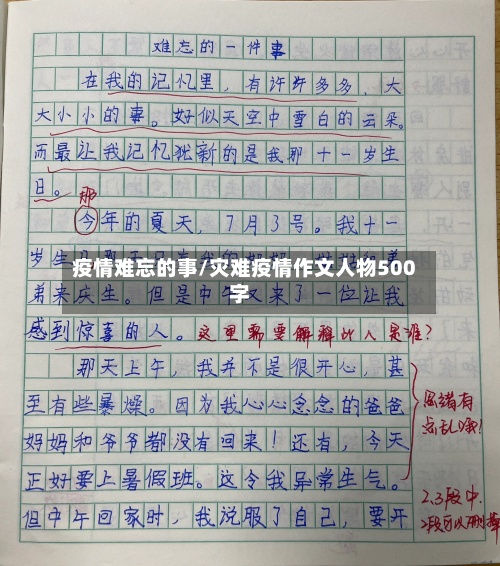 难忘的一件事
在我的记忆里,有许许多多,大
大小小的事。好似天空中雪白的云朵。
而最让我记忆犹新的是我那十一岁生
日。
那
今年的夏天,7月3号。我十一
岁生
疫情难忘的事/灾难疫情作文人物500
字
弟来庆生。但是中午又来了一位让我
感到惊喜的人。这里需要解释此人是谁?
那天上午,我并不是很开心,甚
至有些暴燥。因为我心心念念的爸爸
思绪有
点乱哦!
妈妈和爷爷都没有回来!还有,今天
正好要上暑假班。这令我异常生气。
2.3段中.
但中午回家时,我说服了自己,要开
2段可以删掉